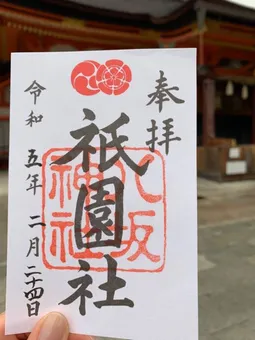 奉拝
祇園社
八坂神社
令和五年二月二十四日